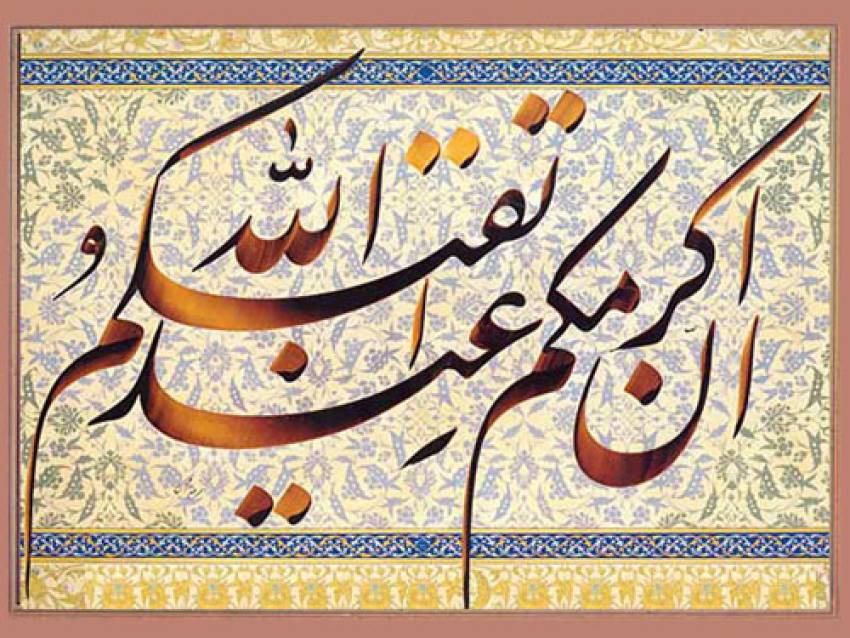 انّ اکرمکم عند اللّه اتقیکم